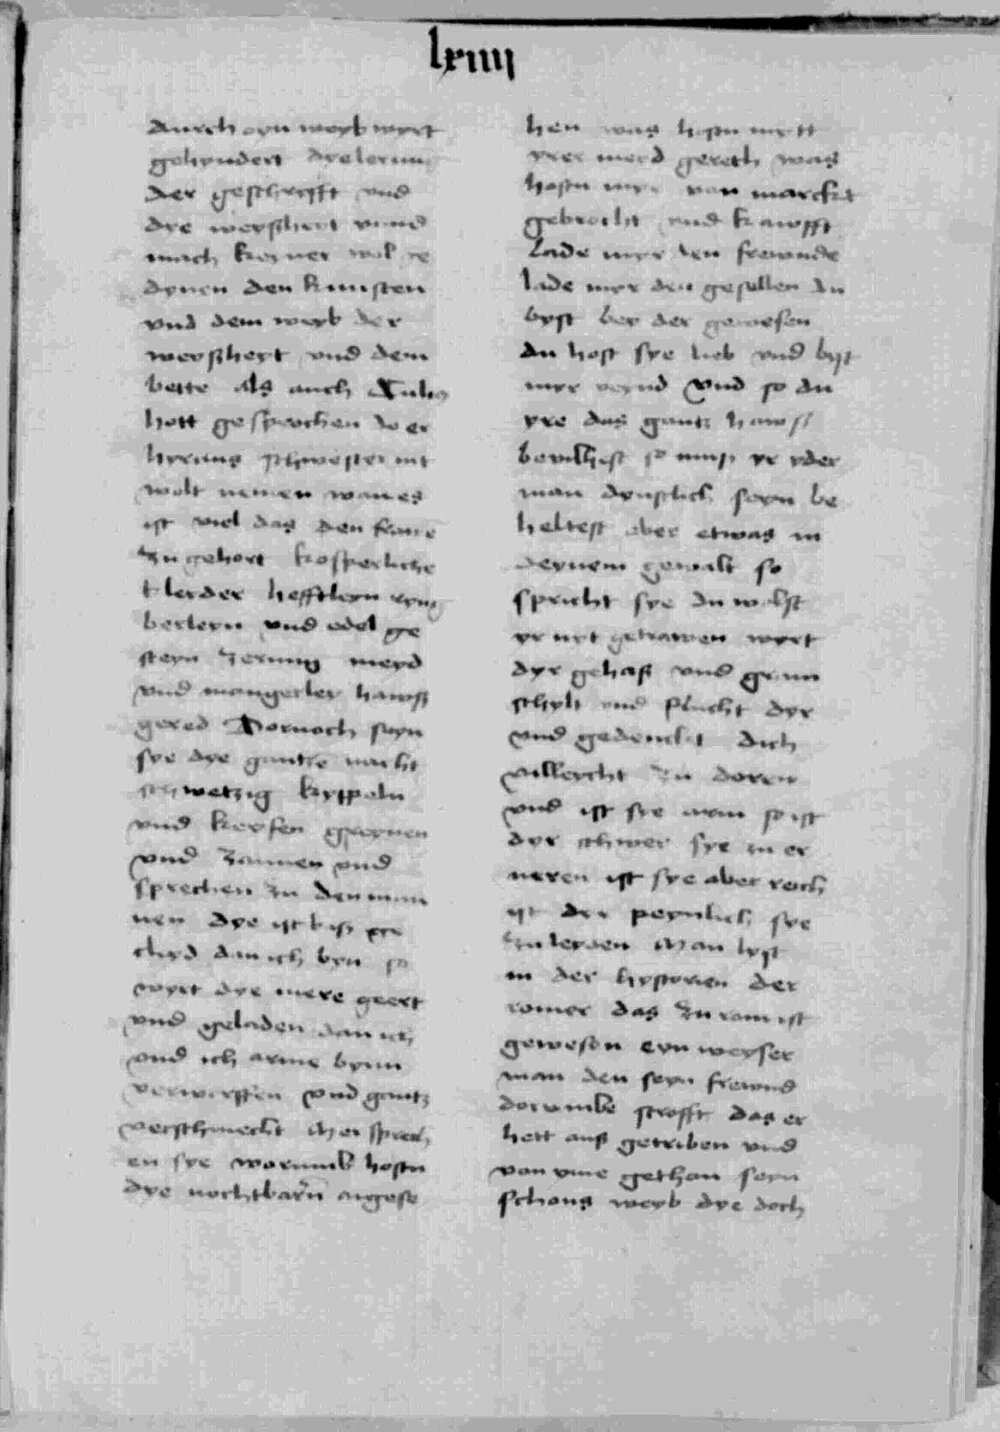 lxiiij
durch eyn weyb wyrt
gehyndert dye lerung
der geschryfft vnd
dye weyßheyt vnnd
mach keyner wol
dynen den kunsten
vnd dem weyb der
weyßheyt vnd dem
bette als auch Tulius
hott gesprochen do er
hyrcius schwester nit
wolt nemen wan es
ist viel das den frawe
zu gehort kosperliche
kleyder hefftleyn ryng
berleyn vnd edel ge
steyn zerung meyd
vnd mangerley hawß
gered Dornoch seyn
sye dye gantze nacht
schwetzig kyppeln
vnd keyfen greynen
vnd zannen vnd
sprechen zu den man
nen dye ist baß
cleyd dan ich byn so
wyrt dye mere geert
vnd geladen dan ich
vnd ich arme bynn
verworffen vnd gantz
verschmecht Mer sprech
en sye worumb hostu
dye nochtbarn angese
hen was hostu mytt
yrer meyd gereth was
hostu myr von marckt
gebrocht vnd kawfft
Lade myr den frewnde
lade myr den gesellen du
byst bey der gewesen
du host sye lieb vnd byst
myr veynd Vnd so du
yre das gantz hawß
bevilhest so muß yr yder
man dynstlich seyn be
heltest aber etwas in
deynem gewalt so
spricht sye du wolst
yr nyt getrawen wyrt
dyr gehaß vnd gram
schylt vnd flucht dyr
vnd gedenckt dich
villeycht zu doten
vnd ist sye arm so ist
dyr schwer sye zu er
neren ist sye aber reich
ist dyr peynlich sye
zu leyden Man lyst
in der hystorien der
romer das zu rom ist
gewesen eyn weyser
man den seyn frewnd
dorumbe stroffte das er
hett auß getriben vnd
von yme gethan seyn
schons weyb dye doch